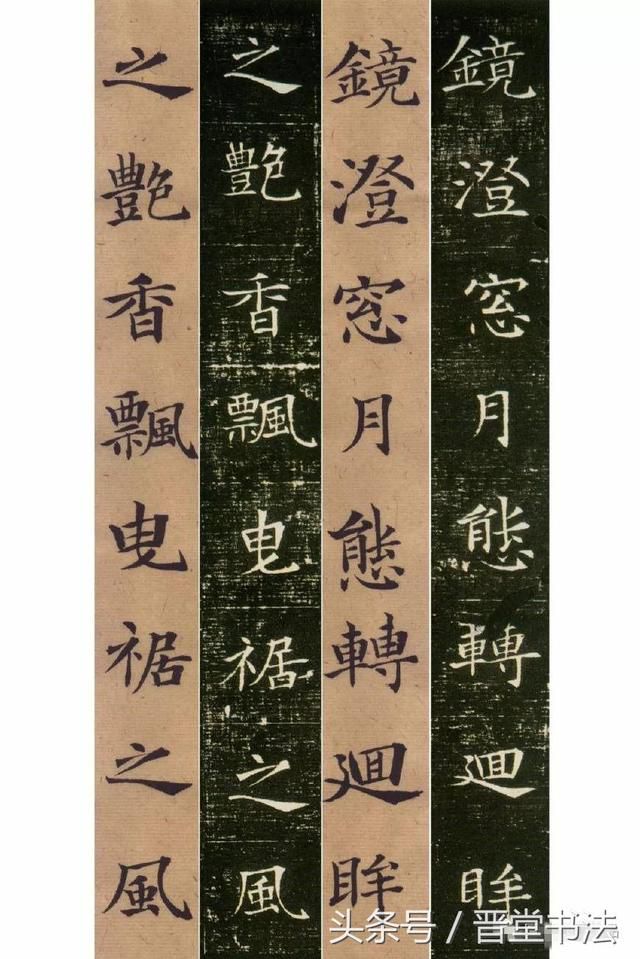 鏡澄窓月態轉迴眸
鏡澄窓月態轉迴眸
之艷香飄曳裾之風
之艷香飄曳裾之風
头条号／晋堂书法